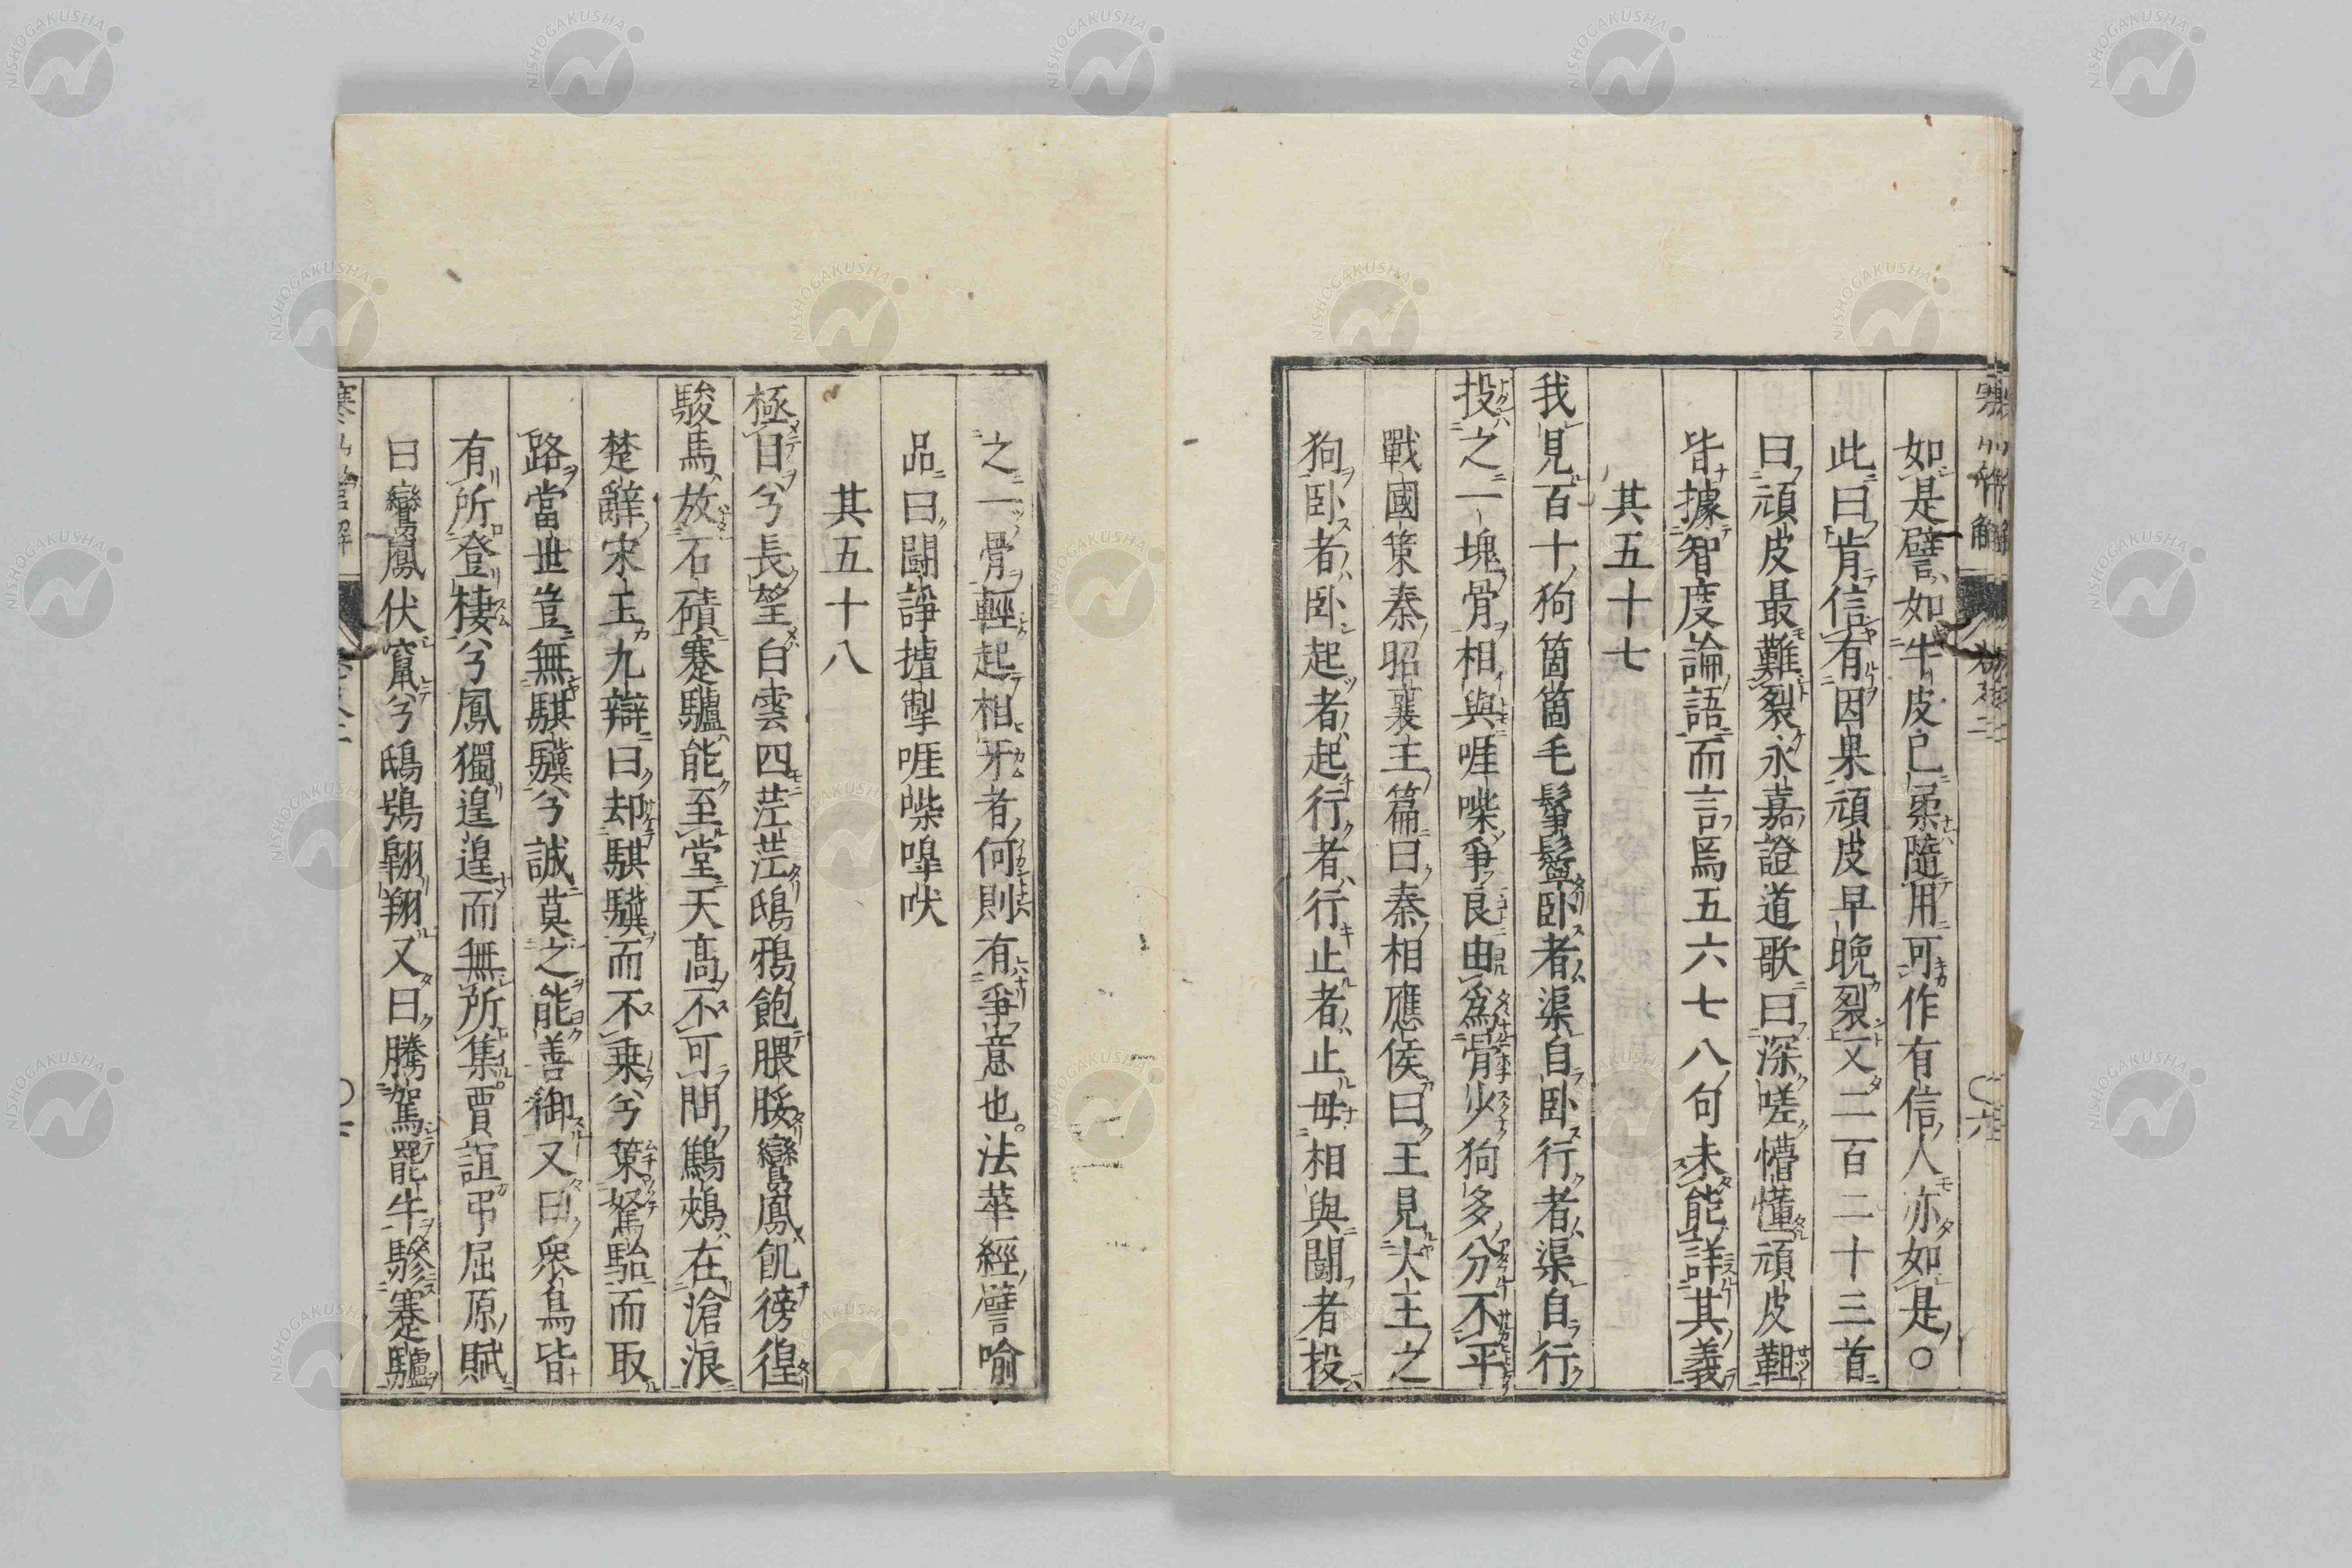 如是譬如牛皮已柔隨用可作有信人亦如是○
此曰肯信有因果頑皮早晚裂又二百二十三首
曰頑皮最難裂永嘉證道歌曰深嗟懵懂頑皮靼
皆據智度論語而言焉五六七八句未能詳其義
其五十七
我見百十狗箇箇毛鬇鬡臥者渠自臥行者渠自行
投之一塊骨相與啀喍爭良由爲骨少狗多分不平
戰國策秦昭襄王篇曰秦相應侯曰王見大王之
狗臥者臥起者起行者行止者止毋相與鬬者投
之一骨輕起相牙者何則有爭意也。法華經譬喻
品曰鬬諍摣掣啀喍嘷吠
其五十八
極目兮長望白雲四茫茫鴟鴉飽腲脮鸞鳳飢徬徨
駿馬放石磧蹇驢能至堂天高不可問鷦鵊在滄浪
楚辭宋玉九辯曰却騏驥而不乗兮策駑駘而取
路當世豈無騏驥兮誠莫之能善御又曰衆鳥皆
有所登棲兮鳳獨遑遑而無所集。賈誼弔屈原賦
曰鸞鳳伏竄兮鴟鴞翺翔又曰騰駕罷牛驂蹇驢
NISHOGAKUSHA